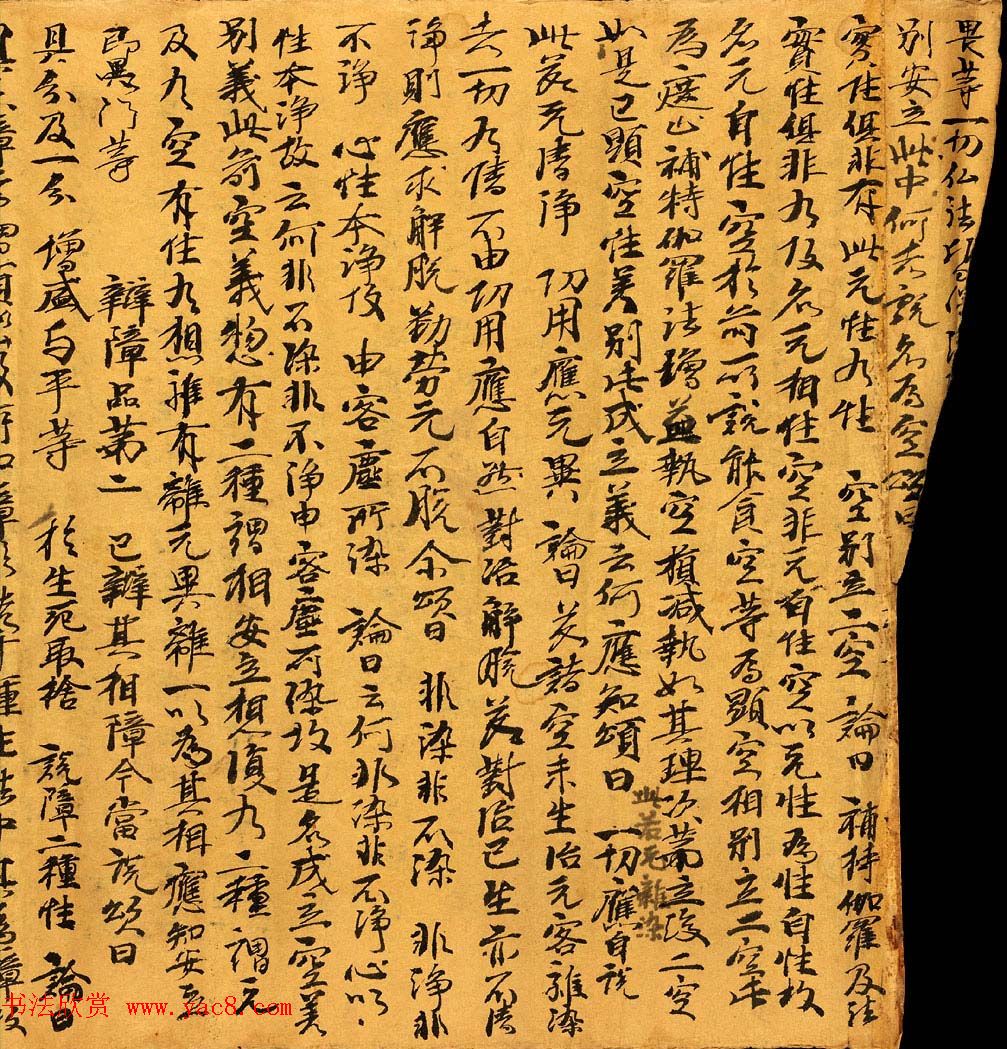 畏等一切仏法皆
別安立此中何者說名為空頌曰
實性俱非有 此无性有性 空別立二空 論曰 補特伽羅及法
實性俱非有故名无相性空非无自性空以无性為性自性故
名无自性空於前所說能食空等為顯空相別立二空此
為遮止補特伽羅法增益執空損減執如其理次第立後二空
如是已顯空性差別此成立義云何應知頌曰 此若无雜染 一切應自脫
此若无清淨 功用應无果 論曰若諸空未生治无客雜染
者一切有情不由功用應自然對治解脫若對治已生亦不清
淨則應求解脫勤勞无 尒頌曰 非染非不染 非淨非
不淨 心性本淨故 由客塵所染 論曰云何非染非不淨心以
性本淨故云何非不染非不淨由客塵所染故是名成立空差
別義此前空義惣有二種謂相安立相復有二種謂无
及有空有性有相離有離无異離一以為其相應知安立
即異門等 辯障品第二 已辯其相障今當說頌曰
具分及一分 增盛与平等 於生死取捨 說障二種性 論曰
书法欣赏 www.yac8.com